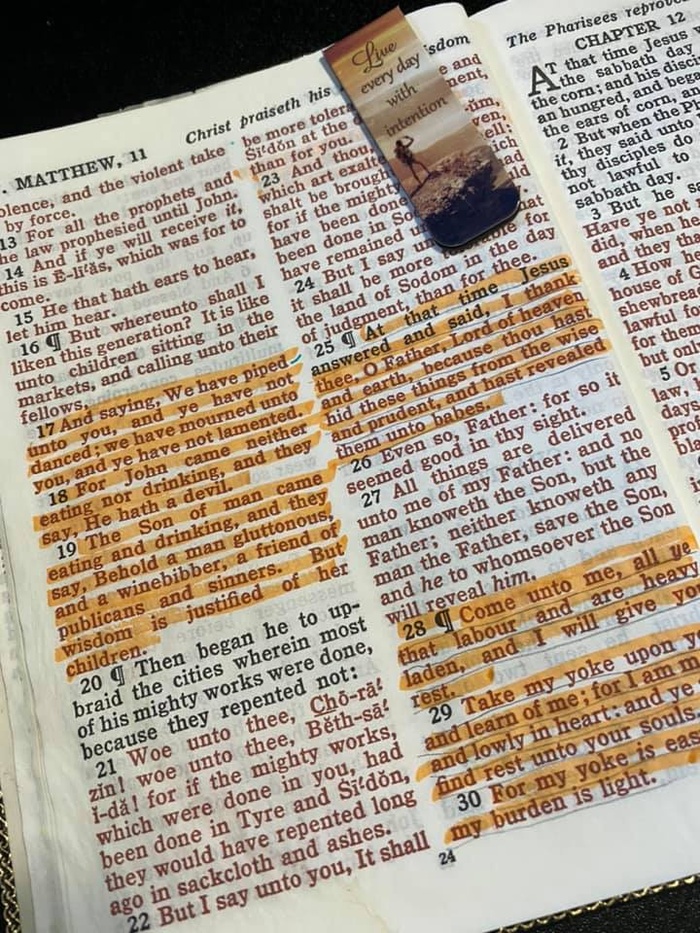 . MATTHEW, 11
olence, and the violent take
by force.
13 For all the prophets and
he law prophesied until John.
14 And if ye will receive it,
this is Ē-lī'ăs, which was for to
come.
15 He that hath ears to hear,
let him hear.
16 ¶ But whereunto shall I
liken this generation? It is like
unto children sitting in the
markets, and calling unto their
fellows,
17 And saying, We have piped
unto you, and ye have not
danced; we have mourned unto
you, and ye have not lamented.
18 For John came neither
eating nor drinking, and they
say, He hath a devil.
19 The Son of man came
eating and drinking, and they
say, Behold a man gluttonous,
and a winebibber, a friend of
publicans and sinners. But
wisdom is justified of her
children.
20 ¶ Then began he to up-
braid the cities wherein most
of his mighty works were done,
because they repented not:
21 Woe unto thee, Chō-rā'
zin! woe unto thee, Bĕth-sā'
ĭ-dă! for if the mighty works,
which were done in you, had
been done in Tyre and Sī'dŏn,
they would have repented long
ago in sackcloth and ashes.
22 But I say unto you, It shall
Christ praiseth his
isdom
be more toler
Sī'dŏn at the
than for you.
23 And thou
which art exalte
shall be brough
for if the mighty
have been done
been done in So
have remained
24 But I say un
it shall be more
for
in the day
the land of Sodom
of judgment, than for thee.
25 ¶ At that time Jesus
answered and said, I thank
thee, O Father, Lord of heaven
and earth, because thou hast
hid these things from the wise
and prudent, and hast revealed
them unto babes.
26 Even so, Father: for so it
seemed good in thy sight.
27 All things are delivered
unto me of my Father: and no
man knoweth the Son, but the
Father; neither knoweth any
man the Father, save the Son,
and he to whomsoever the Son
will reveal him.
28 ¶ Come unto me, all ye
that labour and are heavy
laden, and I will give yo
rest.
29 Take my yoke upon y
and learn of me; for I am m
and lowly in heart: and ye
find rest unto your souls
30 For my yoke is eas
my burden is light.
24
Live
every day
with
intention
The Pharisees reprov
CHAPTER 12
AT that time Jesus
the sabbath day
the corn; and his disci
an hungred, and bega
the ears of corn, an
2 But when the P
it, they said unto
thy disciples do
not lawful to
sabbath day.
3 But he
Have ye not
did, when
and they th
4 How he
house of G
shewbrea
lawful f
for the
but only
5 Or
law,